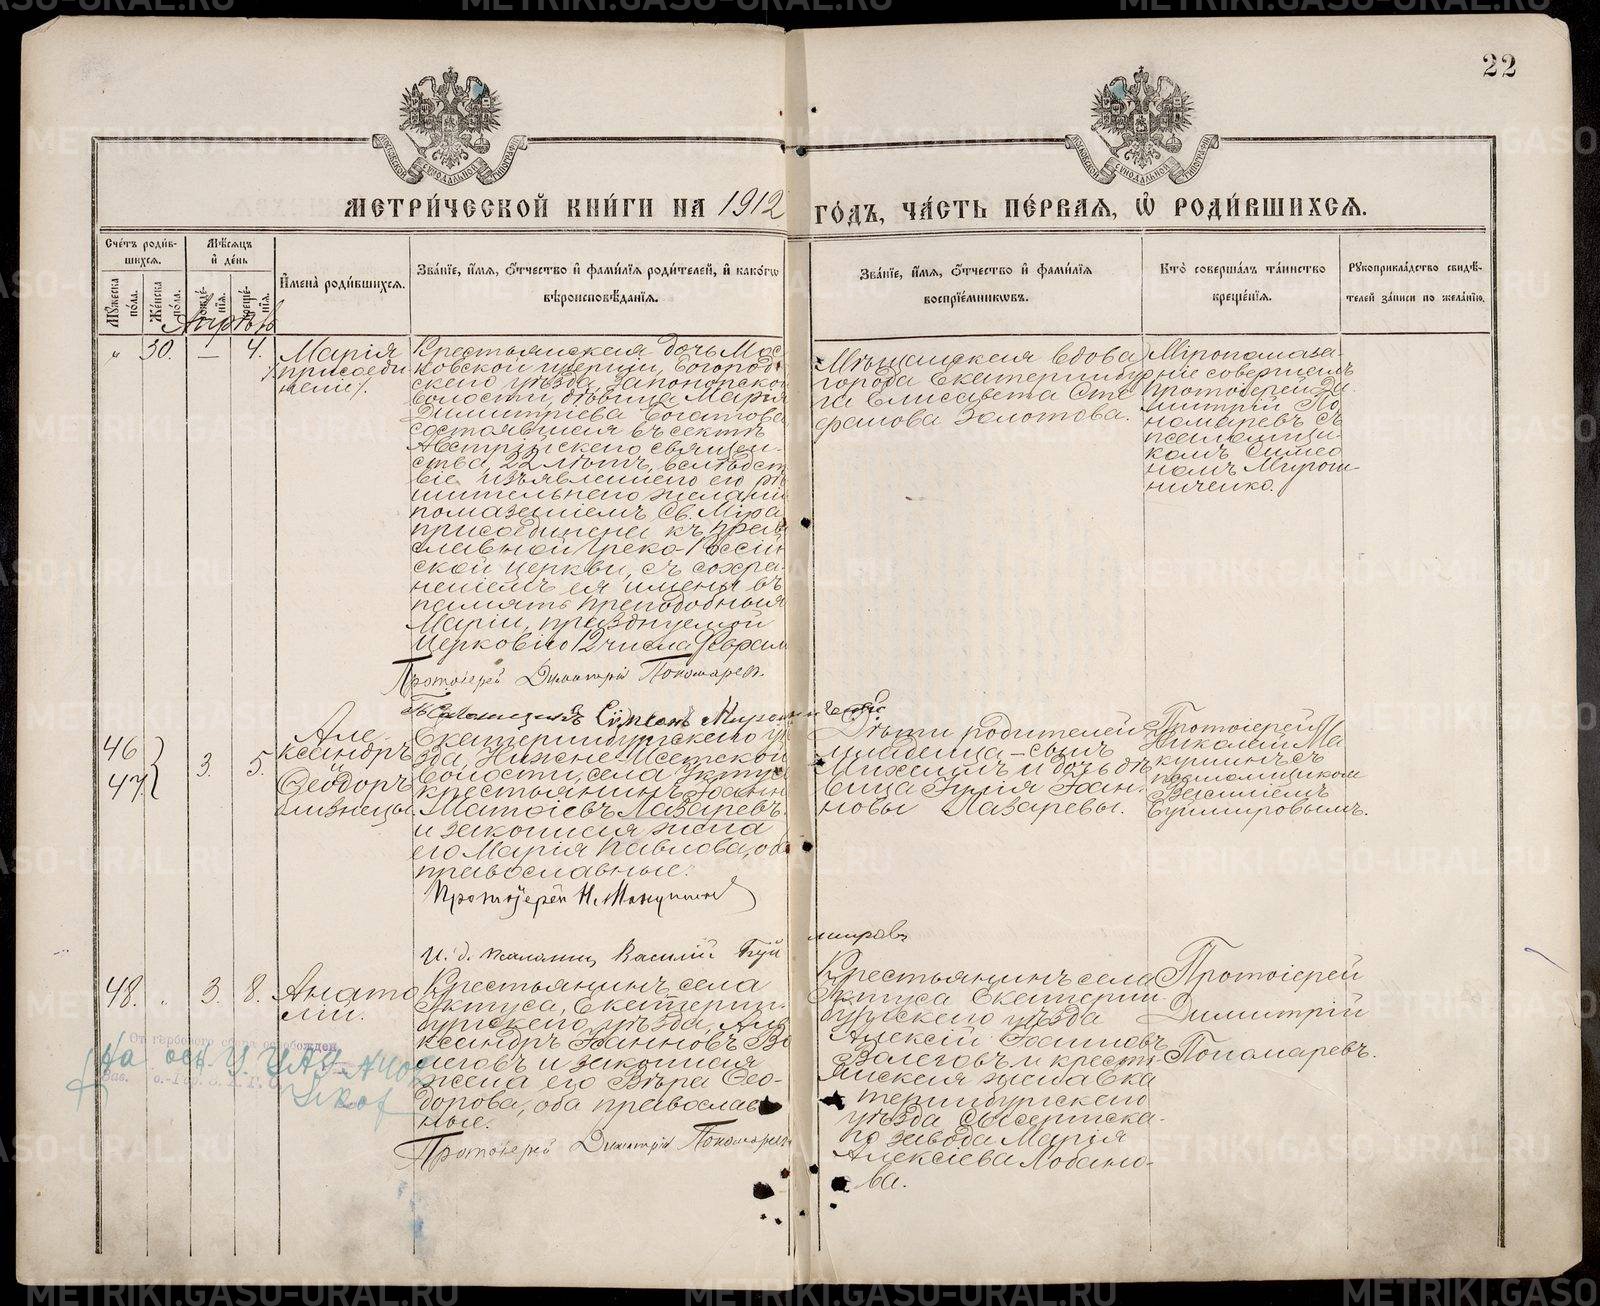 22
МЕТРИ́ЧЕСКОЙ КНИ́ГИ НА 1912 ГО́ДЪ, ЧА́СТЬ ПЕ́РВАЯ, Ѡ РОДИ́ВШИХСЯ.
Сче́тъ роди́в-
шихся.
Му́жеска по́ла.
Же́нска по́ла.
Мѣ́сяцъ
и҆ де́нь
Имена̀ роди́вшихся.
Зва́нїе, и҆́мя, ѻ҆́тчество и҆ фами́лїя роди́телей, и҆ како́гѡ
вѣроисповѣ́данїя.
Зва́нїе, и҆́мя, ѻ҆́тчество и҆ фами́лїя
воспрїе́мникѡвъ.
Кто̀ соверша́лъ та́инство
креще́нїя.
Рꙋкоприкла́дство свидѣ́-
телей за́писи по жела́нїю.
30. — 4.
Марія
присоеди
Крестьянская дочь Мос
ковской губерніи, Богород
скаго уѣзда, Запонорской
волости, дѣвица Марія
Димитріева Богатова
состоявшая въ сектѣ
Австрійскаго священ-
ства, 22 лѣтъ, вслѣдст
віе изъявленнаго ею рѣ
шительнаго желанія
помазаніемъ Св. Мѵра
присоединена къ Право
славной Греко-Россій
ской церкви, съ сохра-
неніемъ ея имени въ
память преподобныя
Маріи, празднуемой
Церковію 12 числа Феврал
Протоіерей Димитрій Пономарев.
Псаломщикъ Сѵмеонъ Мирошниченко
Мѣщанская вдова
города Екатеринбур
га Елисавета Сте
фанова Золотова.
Мѵропомаза-
ніе совершилъ
Протоіерей Ди
митрій По
номаревъ съ
псаломщи-
комъ Симео
номъ Мирош-
ниченко.
46
47.
3. 5.
Але-
ксандръ
Ѳеодоръ
близнецы.
Екатеринбургскаго уѣ
зда, Нижне-Исетской
волости, села Уктуса
крестьянинъ Іоанн
Матѳіевъ Лазаревъ
и законная жена
его Марія Павлова, оба
православные.
Протоіерей Н. Макушинъ
и. д. псаломщ Василій Буй
мировъ
Дѣти родителей
младенца – сынъ
Михаилъ и дочь дѣ
вица Юлія Іоан-
новы Лазаревы.
Протоіерей
Николай Ма
кушинъ съ
псаломщикомъ
Василіемъ
Буймировымъ.
48. 3. 8.
Анато
лій.
Крестьянинъ села
Уктуса, Екатерин-
бургскаго уѣзда, Але
ксандръ Іоанновъ Во
леговъ и законная
жена его Вѣра Ѳео-
дорова, оба православ
ные.
Протоіерей Димитрій Пономарев
Крестьянинъ села
Уктуса Екатерин-
бургскаго уѣзда
Алексій Іоанновъ
Волеговъ и кресть
янская жена Ека
теринбургскаго
уѣзда Сысертска-
го завода Марія
Алексіева Лобано-
ва.
Протоіерей
Димитрій
Пономаревъ.
От гербового сбора освобожден
METRIKI.GASO-URAL.RU